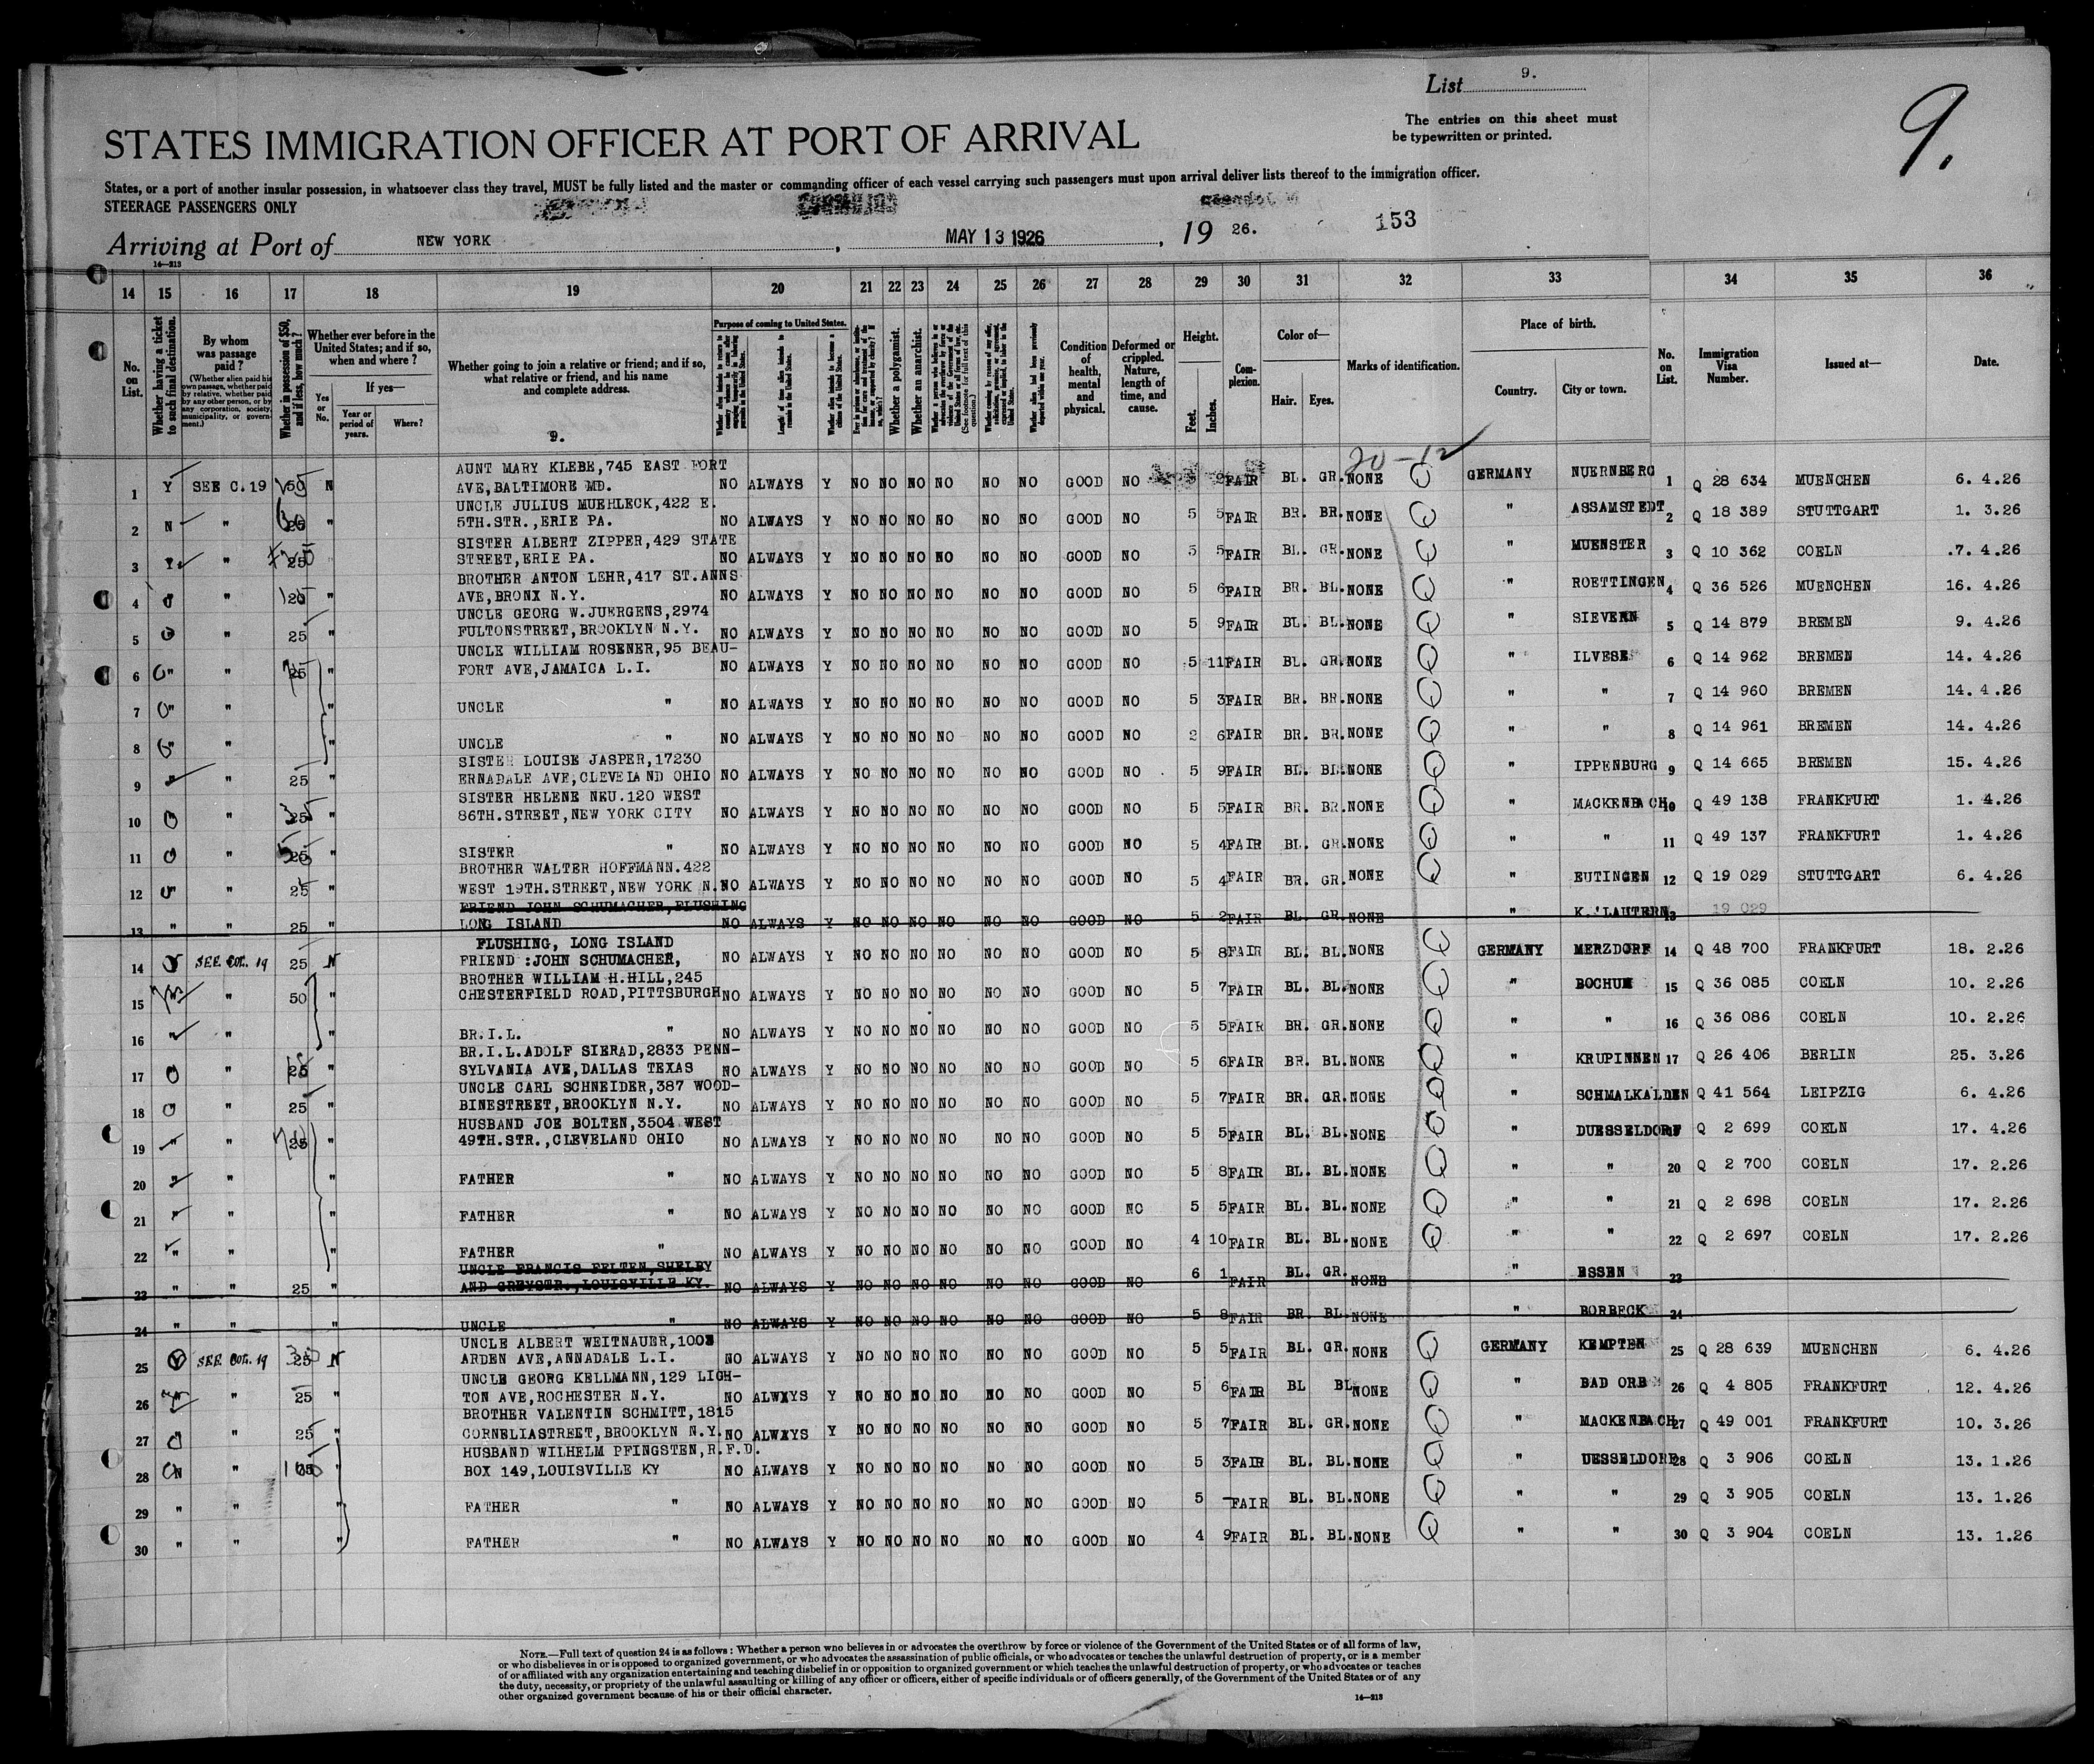 List 9.
9.
The entries on this sheet must
be typewritten or printed.
STATES IMMIGRATION OFFICER AT PORT OF ARRIVAL
States, or a port of another insular possession, in whatsoever class they travel, MUST be fully listed and the master or commanding officer of each vessel carrying such passengers must upon arrival deliver lists thereof to the immigration officer.
STEERAGE PASSENGERS ONLY
Arriving at Port of NEW YORK, MAY 13 1926, 19 26. 153
14—213
14 15 16 17 18 19 20 21 22 23 24 25 26 27 28 29 30 31 32 33 34 35 36
No. on List.
Whether having a ticket to such final destination.
By whom was passage paid?
(Whether alien paid his own passage, whether paid by relative, whether paid by any other person, or by any corporation, society, municipality, or government.)
Whether in possession of $50, and if less, how much?
Whether ever before in the United States; and if so, when and where?
Yes or No.
If yes—
Year or period of years.
Where?
Whether going to join a relative or friend; and if so, what relative or friend, and his name and complete address.
9.
Purpose of coming to United States.
Length of time alien intends to remain in the United States.
Whether alien intends to become a citizen of the United States.
Whether a polygamist.
Whether an anarchist.
Condition of health, mental and physical.
Deformed or crippled. Nature, length of time, and cause.
Height.
Feet. Inches.
Complexion.
Color of—
Hair. Eyes.
Marks of identification.
Place of birth.
Country. City or town.
No. on List.
Immigration Visa Number.
Issued at—
Date.
20-12
AUNT MARY KLEBE,745 EAST FORT
1 Y SEE C.19 50 N AVE,BALTIMORE MD. NO ALWAYS Y NO NO NO NO NO NO GOOD NO FAIR BL. GR. NONE GERMANY NUERNBERG 1 Q 28 634 MUENCHEN 6. 4.26
UNCLE JULIUS MUEHLECK,422 E.
2 N " 25 " 5TH.STR.,ERIE PA. NO ALWAYS Y NO NO NO NO NO NO GOOD NO 5 5 FAIR BR. BR. NONE " ASSAMSTEDT 2 Q 18 389 STUTTGART 1. 3.26
SISTER ALBERT ZIPPER,429 STATE
3 Y " 25 " STREET,ERIE PA. NO ALWAYS Y NO NO NO NO NO NO GOOD NO 5 5 FAIR BL. GR. NONE " MUENSTER 3 Q 10 362 COELN .7. 4.26
BROTHER ANTON LEHR,417 ST.ANNS
4 " " 25 " AVE,BRONX N.Y. NO ALWAYS Y NO NO NO NO NO NO GOOD NO 5 6 FAIR BR. BL. NONE " ROETTINGEN 4 Q 36 526 MUENCHEN 16. 4.26
UNCLE GEORG W.JUERGENS,2974
5 " " 25 " FULTONSTREET,BROOKLYN N.Y. NO ALWAYS Y NO NO NO NO NO NO GOOD NO 5 9 FAIR BL. BL. NONE " SIEVERN 5 Q 14 879 BREMEN 9. 4.26
UNCLE WILLIAM ROSENER,95 BEAU-
6 " " 25 " FORT AVE,JAMAICA L.I. NO ALWAYS Y NO NO NO NO NO NO GOOD NO 5 11 FAIR BL. GR. NONE " ILVESE 6 Q 14 962 BREMEN 14. 4.26
7 " " " UNCLE " NO ALWAYS Y NO NO NO NO NO NO GOOD NO 5 3 FAIR BR. BR. NONE " " 7 Q 14 960 BREMEN 14. 4.26
8 " " " UNCLE " NO ALWAYS Y NO NO NO NO NO NO GOOD NO 2 6 FAIR BR. BR. NONE " " 8 Q 14 961 BREMEN 14. 4.26
SISTER LOUISE JASPER,17230
9 " " 25 " ERNADALE AVE,CLEVELAND OHIO NO ALWAYS Y NO NO NO NO NO NO GOOD NO 5 9 FAIR BL. BL. NONE " IPPENBURG 9 Q 14 665 BREMEN 15. 4.26
SISTER HELENE NEU.120 WEST
10 " " 25 " 86TH.STREET,NEW YORK CITY NO ALWAYS Y NO NO NO NO NO NO GOOD NO 5 5 FAIR BR. BR. NONE " MACKENBACH 10 Q 49 138 FRANKFURT 1. 4.26
11 " " 25 " SISTER " NO ALWAYS Y NO NO NO NO NO NO GOOD NO 5 4 FAIR BL. GR. NONE " " 11 Q 49 137 FRANKFURT 1. 4.26
BROTHER WALTER HOFFMANN.422
12 " " 25 " WEST 19TH.STREET,NEW YORK N. NO ALWAYS Y NO NO NO NO NO NO GOOD NO 5 4 FAIR BR. GR. NONE " EUTINGEN 12 Q 19 029 STUTTGART 6. 4.26
FRIEND JOHN SCHUMACHER,FLUSHING
13 " " 25 " LONG ISLAND NO ALWAYS Y NO NO NO NO NO NO GOOD NO 5 2 FAIR BL. GR. NONE " K.'LAUTERN 13 19 029
FLUSHING, LONG ISLAND
14 Y SEE COL. 19 25 N FRIEND :JOHN SCHUMACHER, NO ALWAYS Y NO NO NO NO NO NO GOOD NO 5 8 FAIR BL. BL. NONE GERMANY MERZDORF 14 Q 48 700 FRANKFURT 18. 2.26
BROTHER WILLIAM H.HILL,245
15 " 50 CHESTERFIELD ROAD,PITTSBURGH NO ALWAYS Y NO NO NO NO NO NO GOOD NO 5 7 FAIR BL. BL. NONE " BOCHUM 15 Q 36 085 COELN 10. 2.26
16 " " " BR.I.L. " NO ALWAYS Y NO NO NO NO NO NO GOOD NO 5 5 FAIR BR. GR. NONE " " 16 Q 36 086 COELN 10. 2.26
BR.I.L.ADOLF SIERAD,2833 PENN-
17 " " 25 " SYLVANIA AVE,DALLAS TEXAS NO ALWAYS Y NO NO NO NO NO NO GOOD NO 5 6 FAIR BR. BL. NONE " KRUPINNEN 17 Q 26 406 BERLIN 25. 3.26
UNCLE CARL SCHNEIDER,387 WOOD-
18 " " 25 " BINESTREET,BROOKLYN N.Y. NO ALWAYS Y NO NO NO NO NO NO GOOD NO 5 7 FAIR BR. GR. NONE " SCHMALKALDEN Q 41 564 LEIPZIG 6. 4.26
HUSBAND JOE BOLTEN,3504 WEST
19 " " 25 " 49TH.STR.,CLEVELAND OHIO NO ALWAYS Y NO NO NO NO NO NO GOOD NO 5 5 FAIR BL. BL. NONE " DUESSELDORF Q 2 699 COELN 17. 4.26
20 " " " FATHER " NO ALWAYS Y NO NO NO NO NO NO GOOD NO 5 8 FAIR BL. BL. NONE " " 20 Q 2 700 COELN 17. 2.26
21 " " " FATHER " NO ALWAYS Y NO NO NO NO NO NO GOOD NO 5 5 FAIR BL. BL. NONE " " 21 Q 2 698 COELN 17. 2.26
22 " " " FATHER " NO ALWAYS Y NO NO NO NO NO NO GOOD NO 4 10 FAIR BL. BL. NONE " " 22 Q 2 697 COELN 17. 2.26
UNCLE FRANCIS FELTEN,SHELBY
23 " " 25 " AND GREYSTR.,LOUISVILLE KY. NO ALWAYS Y NO NO NO NO NO NO GOOD NO 6 1 FAIR BL. GR. NONE " ESSEN 23
24 " " " UNCLE " NO ALWAYS Y NO NO NO NO NO NO GOOD NO 5 8 FAIR BR. BL. NONE " BORBECK 24
UNCLE ALBERT WEITNAUER,1003
25 Y SEE COL. 19 25 N ARDEN AVE,ANNADALE L.I. NO ALWAYS Y NO NO NO NO NO NO GOOD NO 5 5 FAIR BL. GR. NONE GERMANY KEMPTEN 25 Q 28 639 MUENCHEN 6. 4.26
UNCLE GEORG KELLMANN,129 LIGH-
26 " 25 " TON AVE,ROCHESTER N.Y. NO ALWAYS Y NO NO NO NO NO NO GOOD NO 5 6 FAIR BL BL NONE " BAD ORB 26 Q 4 805 FRANKFURT 12. 4.26
BROTHER VALENTIN SCHMITT,1815
27 " " 25 " CORNELIASTREET,BROOKLYN N.Y. NO ALWAYS Y NO NO NO NO NO NO GOOD NO 5 7 FAIR BL. GR. NONE " MACKENBACH 27 Q 49 001 FRANKFURT 10. 3.26
HUSBAND WILHELM PFINGSTEN,R.F.D.
28 N " " BOX 149,LOUISVILLE KY NO ALWAYS Y NO NO NO NO NO NO GOOD NO 5 3 FAIR BL. BL. NONE " UESSELDORF 28 Q 3 906 COELN 13. 1.26
29 " " " FATHER " NO ALWAYS Y NO NO NO NO NO NO GOOD NO 5 — FAIR BL. BL. NONE " " 29 Q 3 905 COELN 13. 1.26
30 " " " FATHER " NO ALWAYS Y NO NO NO NO NO NO GOOD NO 4 9 FAIR BL. BL. NONE " " 30 Q 3 904 COELN 13. 1.26
NOTE.—Full text of question 24 is as follows: Whether a person who believes in or advocates the overthrow by force or violence of the Government of the United States or of all forms of law,
or who disbelieves in or is opposed to organized government, or who advocates the assassination of public officials, or who advocates or teaches the unlawful destruction of property, or is a member
of or affiliated with any organization entertaining and teaching disbelief in or opposition to organized government or which teaches the unlawful destruction of property, or who advocates or teaches
the duty, necessity, or propriety of the unlawful assaulting or killing of any officer or officers, either of specific individuals or of officers generally, of the Government of the United States or of any
other organized government because of his or their official character.
14—213